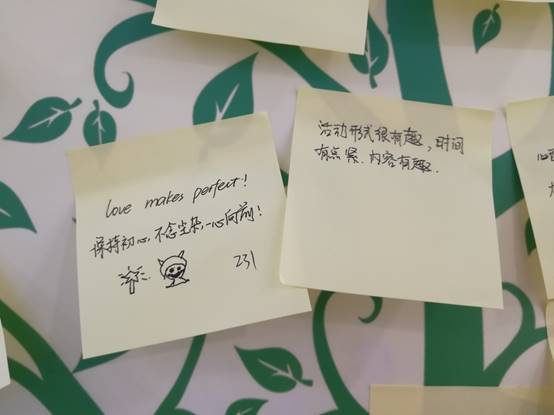 love makes perfect!
保持初心,不念尘杂,一心向前!
231
活动形式很有趣,时间
有点紧.内容有趣.